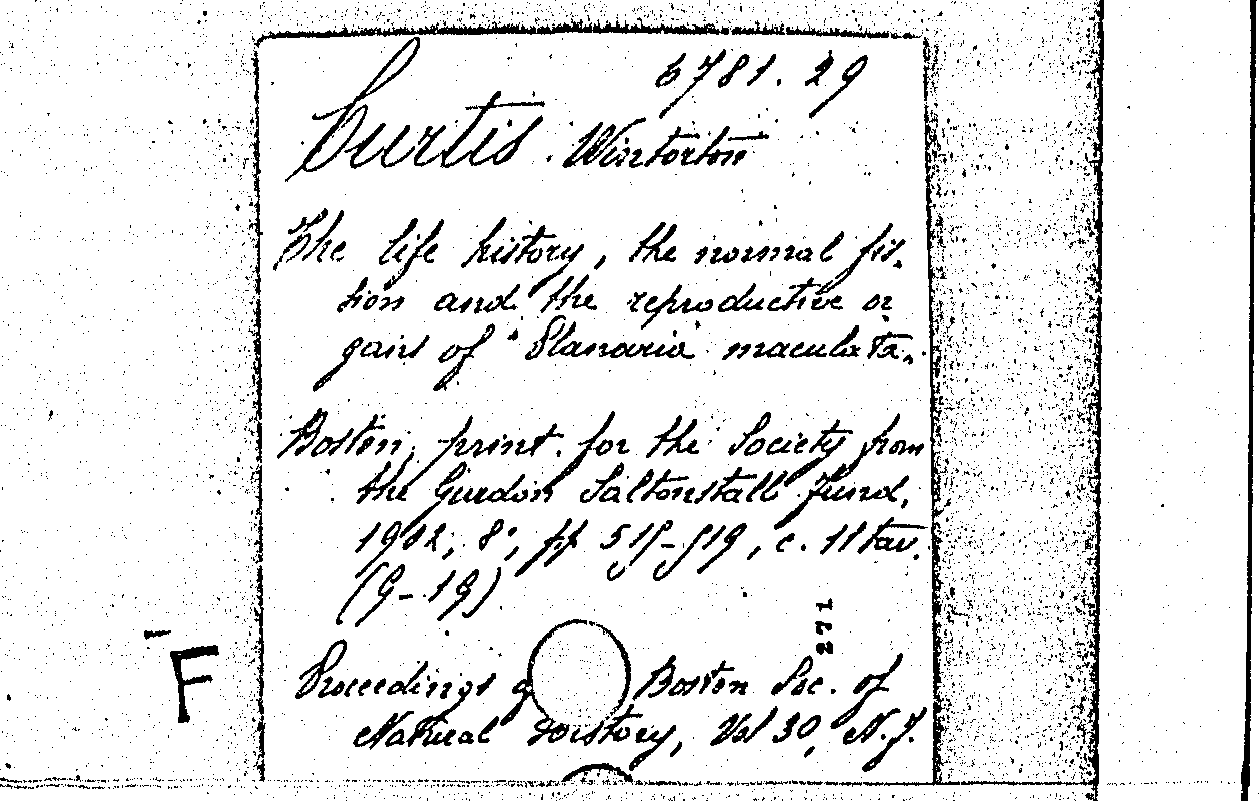 6781.29
Curtis. Wintorton
The life history, the normal fis-
sion and the reproductive or
gans of "Planaria maculata.
Boston, print. for the Society from
the Gurdon Saltonstall Fund,
1902, 8°, pp 517-519, c. 11 tav.
(9-19)
271
Proceedings o Boston Soc. of
Natural History, Vol 30, N.7.
F